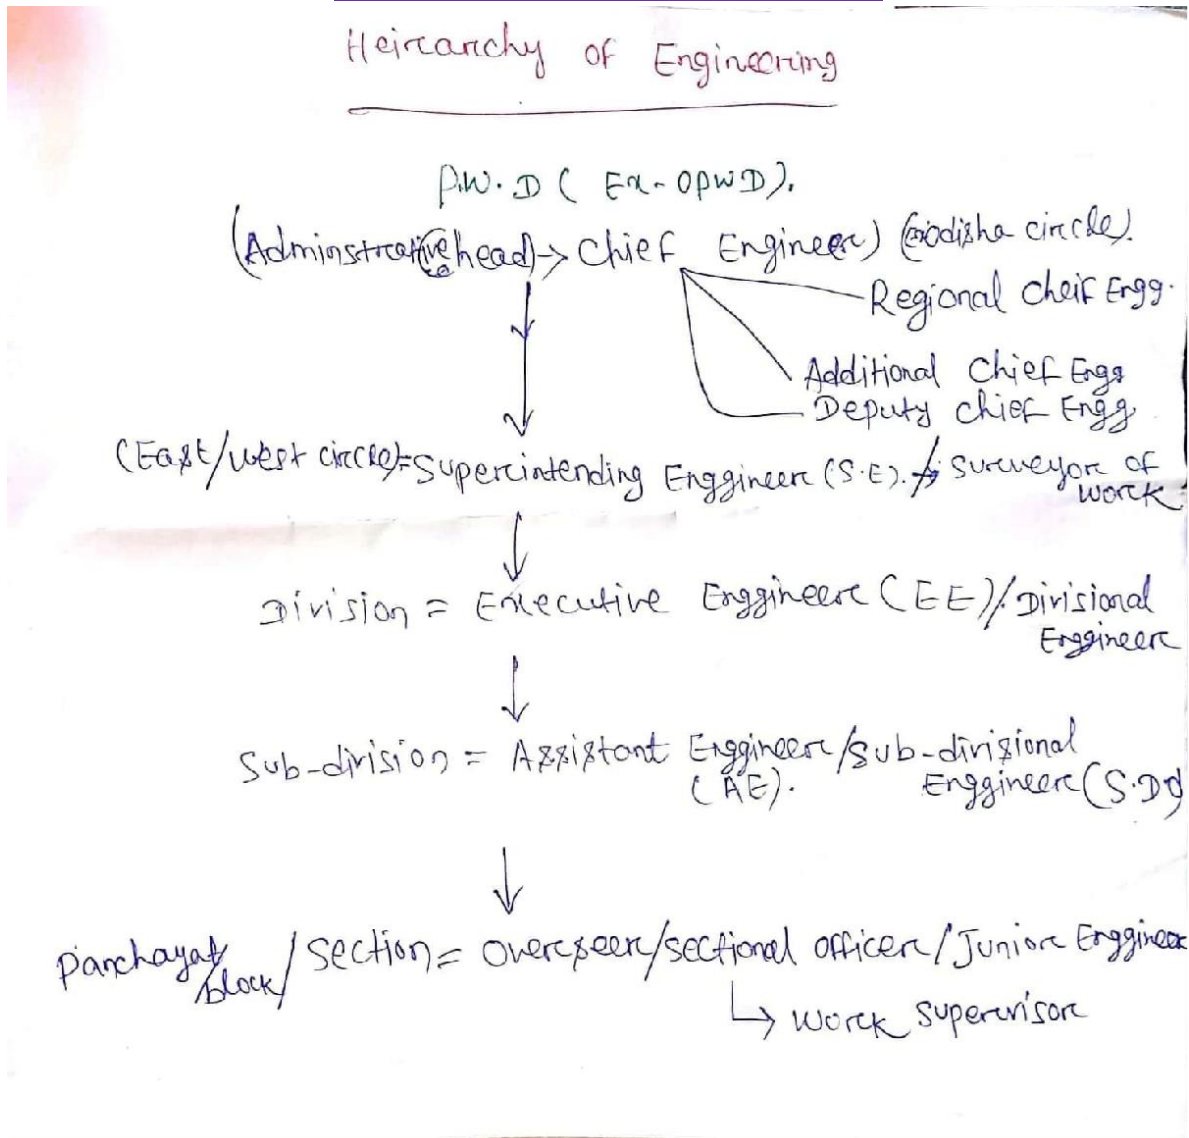 Heirarchy of Engineering
P.W.D ( Ex-OPWD).
(Adminstrative head) → Chief Engineer) (odisha circle).
Regional Cheif Engg.
Additional Chief Engg
Deputy Chief Engg
(East/west circle)= Superintending Enggineer (S.E). / Surveyor of
work
Division = Executive Enggineer (EE)/ Divisional
Enggineer
Sub-division = Assistant Enggineer/sub-divisional
(AE). Enggineer (S.D
Panchayat / section = Overseer/sectional officer/Junior Enggineer
/block
↳ work supervisor